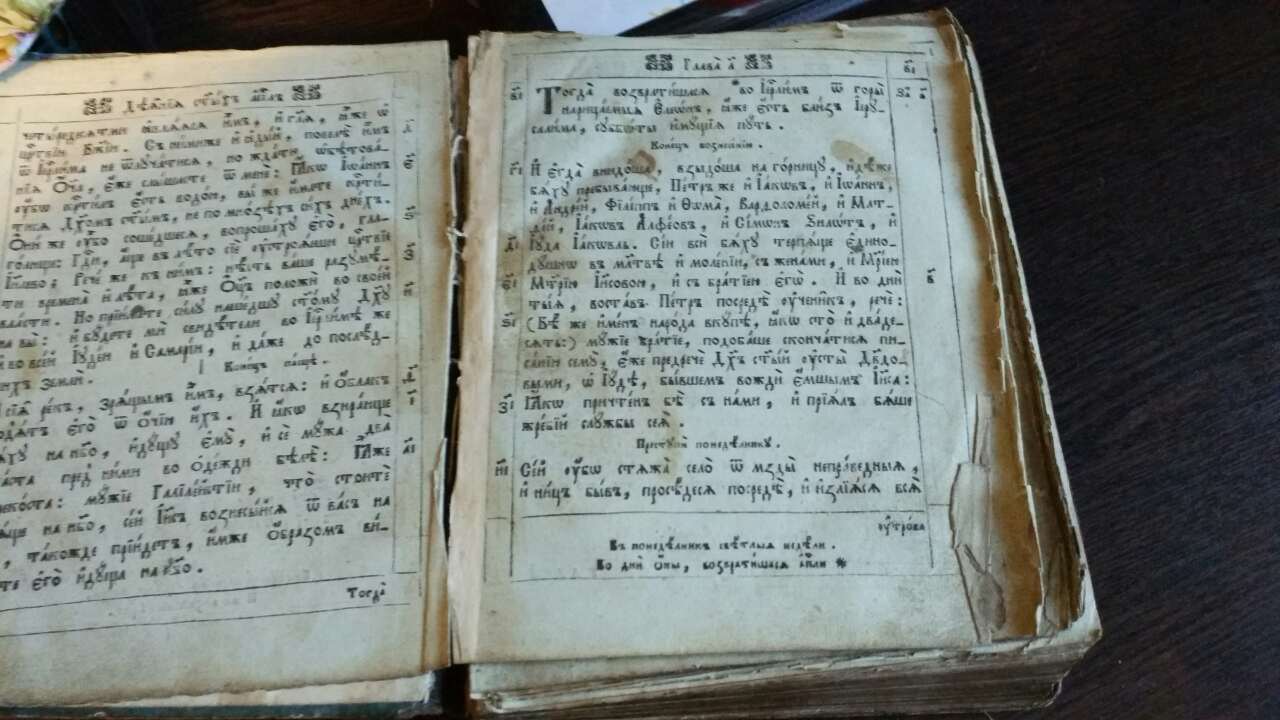 Дѣѧ́нїѧ ст҃ы́хъ а҆пⷭ҇лъ
четы́редесѧтми ꙗ҆влѧ́ѧсѧ и҆̀мъ, и҆ гл҃ѧ, ꙗ҆̀же ѡ҆
црⷭ҇твїи бж҃їи. Съ ни́миже и҆ ꙗ҆ды́й, повелѣ̀ и҆̀мъ
ѿ і҆ерⷭ҇ли́ма не ѿлꙋча́тисѧ, но жда́ти ѡ҆бѣтова́-
нїѧ ѻ҆́ч҃а, є҆́же слы́шасте ѿ менє̀: Ꙗ҆́кѡ і҆ѡа́ннъ
ᲂу҆́бѡ крⷭ҇ти́лъ є҆́сть водо́ю, вы́ же и҆́мате крⷭ҇ти́-
тисѧ дх҃омъ ст҃ы́мъ, не по мно́зѣхъ си́хъ дне́хъ.
Ѻ҆ни́ же ᲂу҆́бѡ соше́дшесѧ, вопроша́хꙋ є҆го̀, гла-
го́люще: Гдⷭ҇и, а҆́ще въ лѣ́то сїѐ ᲂу҆строѧ́еши црⷭ҇твїе
і҆и҃лево; Рече́ же къ ни́мъ: нѣ́сть ва́ше разꙋмѣ́-
ти времена̀ и҆ лѣ́та, ꙗ҆̀же ѻ҆ц҃ъ положѝ во свое́й
вла́сти. Но прїи́мете си́лꙋ наше́дшꙋ ст҃о́мꙋ дх҃ꙋ
на вы̀: и҆ бꙋ́дете мѝ свидѣ́тели во і҆ерⷭ҇ли́мѣ же
и҆ во все́й і҆ꙋде́и и҆ самарі́и, и҆ да́же до послѣ́д-
нихъ землѝ.
Коне́цъ па́сцѣ.
И҆ сїѧ̑ ре́къ, зрѧ́щымъ и҆̀мъ, взѧ́тсѧ: и҆ ѻ҆́блакъ
подъѧ́тъ є҆го̀ ѿ ѻ҆́чїю и҆́хъ. И҆ ꙗ҆́кѡ взира́юще
бѧ́хꙋ на нб҃о, и҆дꙋ́щꙋ є҆мꙋ̀, и҆ сѐ мꙋ́жа два̀
ста́ста пред̾ ни́ми во ѻ҆де́жди бѣ́лѣ: Ꙗ҆̀же
реко́ста: мꙋ́жїе галїле́йстїи, что̀ стоитѐ
зрѧ́ще на нб҃о, се́й і҆и҃съ вознесы́йсѧ ѿ ва́съ на
нб҃о, та́кожде прїи́детъ, и҆́мже ѻ҆́бразомъ ви́-
дѣсте є҆го̀ и҆дꙋ́ща на нб҃о.
Тогда̀
Глава̀ а҃
в҃і Тогда̀ возврати́шасѧ во і҆ерⷭ҇ли́мъ ѿ горы̀
нарица́емыѧ є҆леѡ́нъ, ꙗ҆́же є҆́сть бли́з̾ і҆ерꙋ-
сали́ма, сꙋббѡ́ты и҆мꙋ́щїѧ пꙋ́ть.
Коне́цъ вознесе́нїю.
г҃і И҆ є҆гда̀ внидо́ша, взыдо́ша на го́рницꙋ, и҆дѣ́же
бѧ́хꙋ пребыва́юще, пе́тръ же и҆ і҆а́кѡвъ, и҆ і҆ѡа́ннъ,
и҆ а҆ндре́й, фїлі́ппъ и҆ ѳѡма̀, варѳоломе́й, и҆ мат-
ѳе́й, і҆а́кѡвъ а҆лфе́овъ, и҆ сі́мѡнъ зилѡ́тъ, и҆
д҃і і҆ꙋ́да і҆а́кѡвль. Сі́и всѝ бѧ́хꙋ терпѧ́ще є҆дино-
дꙋ́шнѡ въ мл҃твѣ и҆ моле́нїи, съ жена́ми, и҆ мр҃і́ею
є҃і мт҃рїю і҆и҃совою, и҆ съ бра́тїею є҆гѡ̀. И҆ во дни̑
ты̑ѧ, воста́въ пе́тръ посредѣ̀ ᲂу҆чени̑къ, речѐ:
ѕ҃і (Бѣ́ же и҆ме́нъ наро́да вкꙋ́пѣ, ꙗ҆́кѡ сто̀ и҆ два́де-
сѧть:) мꙋ́жїе бра́тїе, подоба́ше сконча́тисѧ пи-
са́нїю семꙋ̀, є҆́же предречѐ дх҃ъ ст҃ы́й ᲂу҆сты̀ дв҃до-
выми, ѡ҆ і҆ꙋ́дѣ, бы́вшемъ вождѝ є҆́мшымъ і҆и҃са:
з҃і Ꙗ҆́кѡ причте́нъ бѣ̀ съ на́ми, и҆ прїѧ́лъ бѧ́ше
жре́бїй слꙋ́жбы сеѧ̀.
Пристꙋпѝ понедѣ́льникꙋ.
и҃і Се́й ᲂу҆́бѡ стѧжа̀ село̀ ѿ мзды̀ непра́ведныѧ,
и҆ ни́цъ бы́въ, просѣ́десѧ посредѣ̀, и҆ и҆злїѧ́сѧ всѧ̀
ᲂу҆тро́ба
Въ понедѣ́льникъ свѣ́тлыѧ недѣ́ли.
Во дни̑ ѻ҆́ны, возврати́шасѧ а҆пⷭ҇ли *